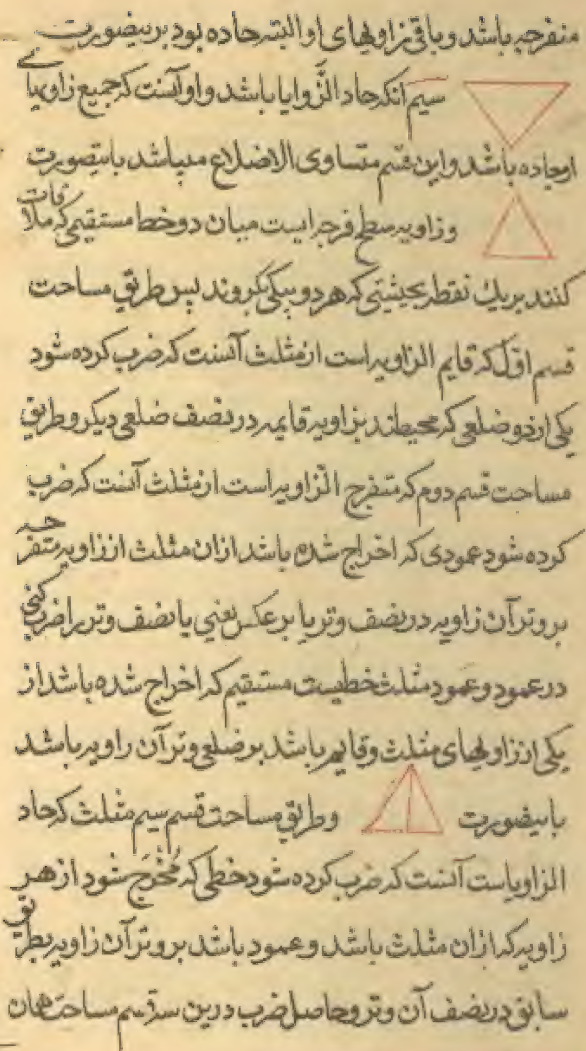 منفرجه باشد و باقی زاویهای او البته حاده بود برینصورت
سیم انکه حاد الزّوایا باشد و او آنست که جمیع زاویهای
او حاده باشد و این قسم متساوی الاضلاع میباشد باینصورت
و زاویه سطح فرجه ایست میان دو خط مستقیمی که ملاقات
کنند بر یك نقطه بحیثیتی که هر دو بیکی نکروند پس طریق مساحت
قسم اوّل که قایم الزاویه است از مثلث آنست که ضرب کرده شود
یکی از دو ضلعی که محیطند بزاویه قایمه در نصف ضلعی دیکر و طریق
مساحت قسم دوم که متفرج الزاویه است از مثلث آنست که ضرب
کرده شود عمودی که اخراج شده باشد از ان مثلث از زاویه متفرجه
بر وتر آن زاویه در نصف وتر یا بر عکس یعنی یا نصف وتر را ضرب کنی
در عمود و عمود مثلث خطیست مستقیم که اخراج شده باشد از
یکی از زاویهای مثلث و قایم باشد بر ضلعی وتر آن زاویه باشد
باینصورت و طریق مساحت قسم سیم مثلث که حاد
الزاویاست آنست که ضرب کرده شود خطی که مُخْرَج شود از هر
زاویه که از ان مثلث باشد و عمود باشد بر وتر آن زاویه بطریق
سابق در نصف آن وتر و حاصل ضرب درین سه قسم مساحت همان